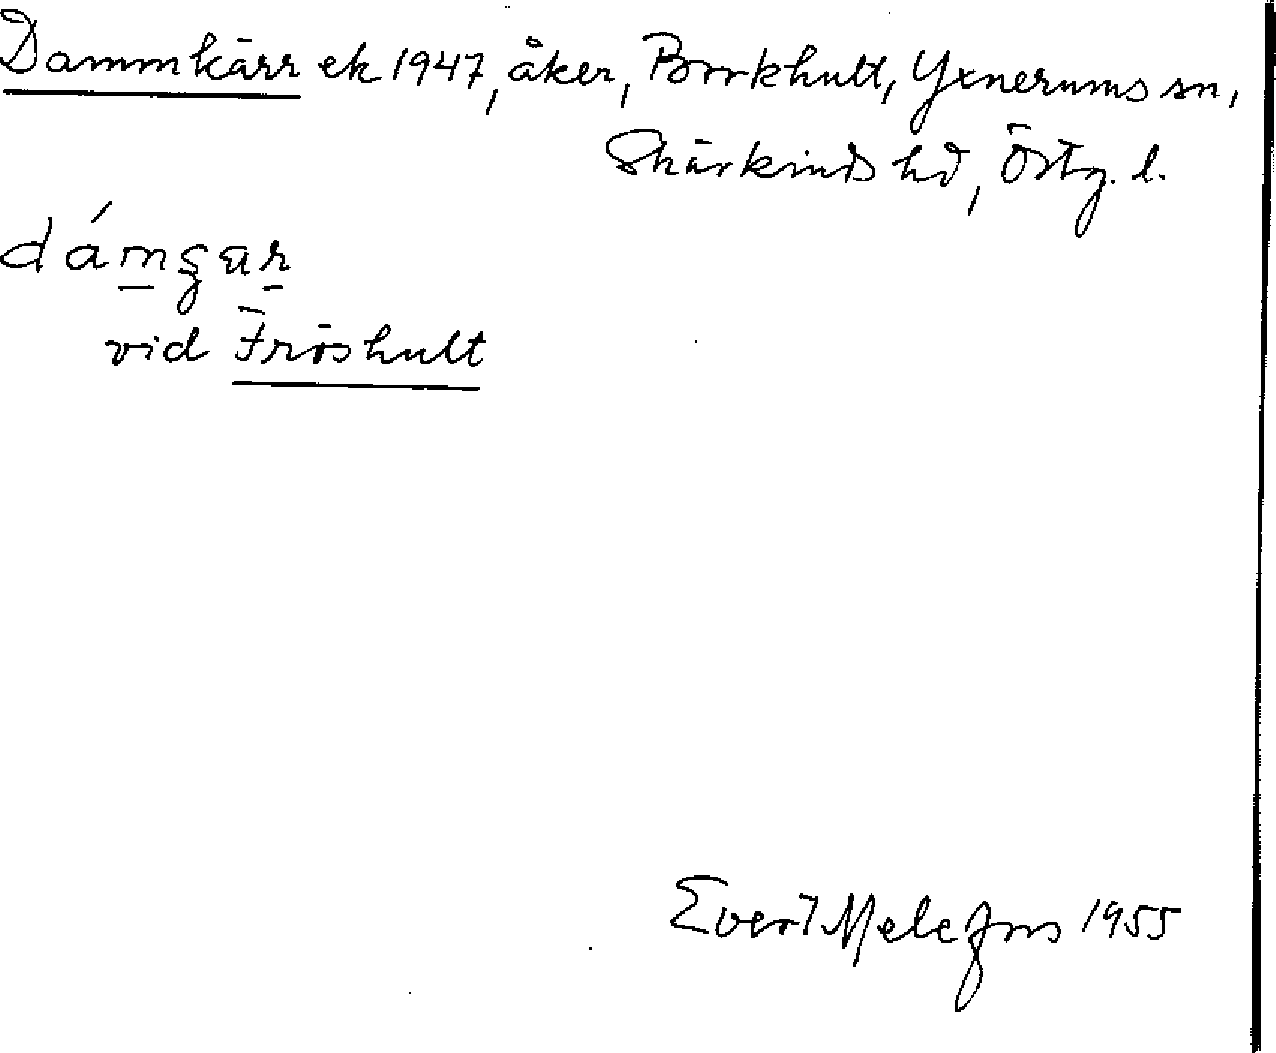 Dammkärr ek 1947, åker, Borrkhult, Yxnerums sn,
Skärkinds hd, Östg. l.
vid Fröshult
Evert Melefors 1955